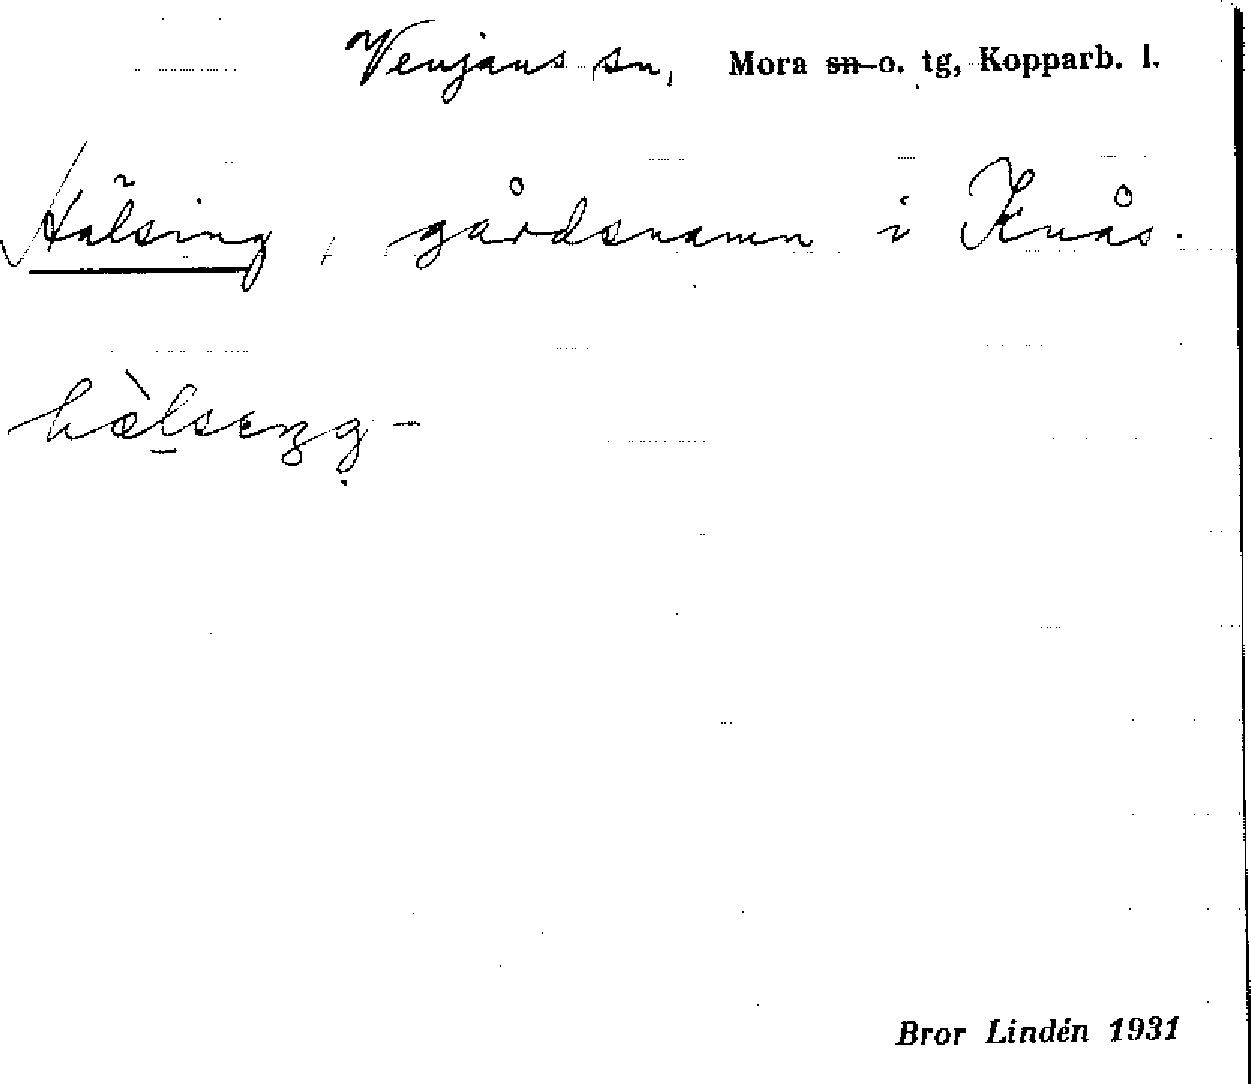 Venjans sn, Mora sn o. tg, Kopparb. l.
Hälsing, gårdsnamn i Knås.
hæ̀lseŋg-
Bror Lindén 1931